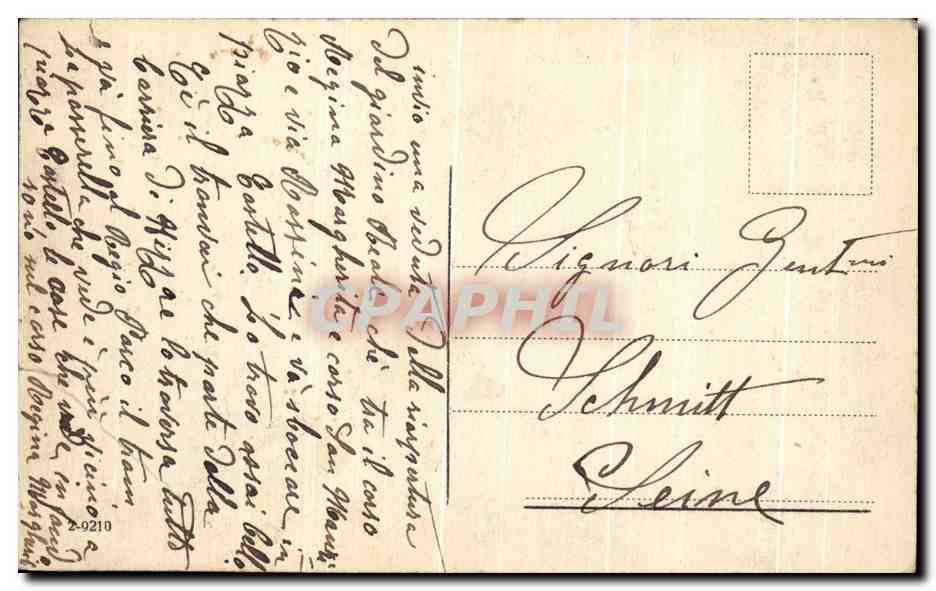 invio una veduta della riapertura
del giardino Reale ch'è tra il corso
Regina Margherita e corso San Mauri
zio e via Rossini e va sboccare in
piazza Castello. Lo trovo assai bello
C'è il tranvai che parte dalla
barriera di Nizza e lo traversa tutto
e va fino al Regio Parco il tram
La passerella che vede è più vicino a
Castello le case che vede, in fondo
sono nel corso Regina Margheri
2-9210
Signori Gent mi
Schmitt
Seine
CPAPHIL